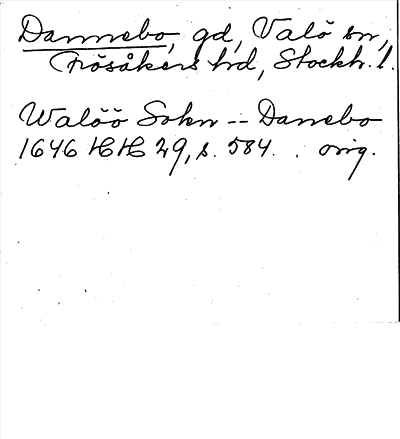 Dannebo, gd, Valö sn,
Frösåkers hd, Stockh. l.
Walöö Sokn -- Danebo
1646 HH 29, s. 584. . orig.